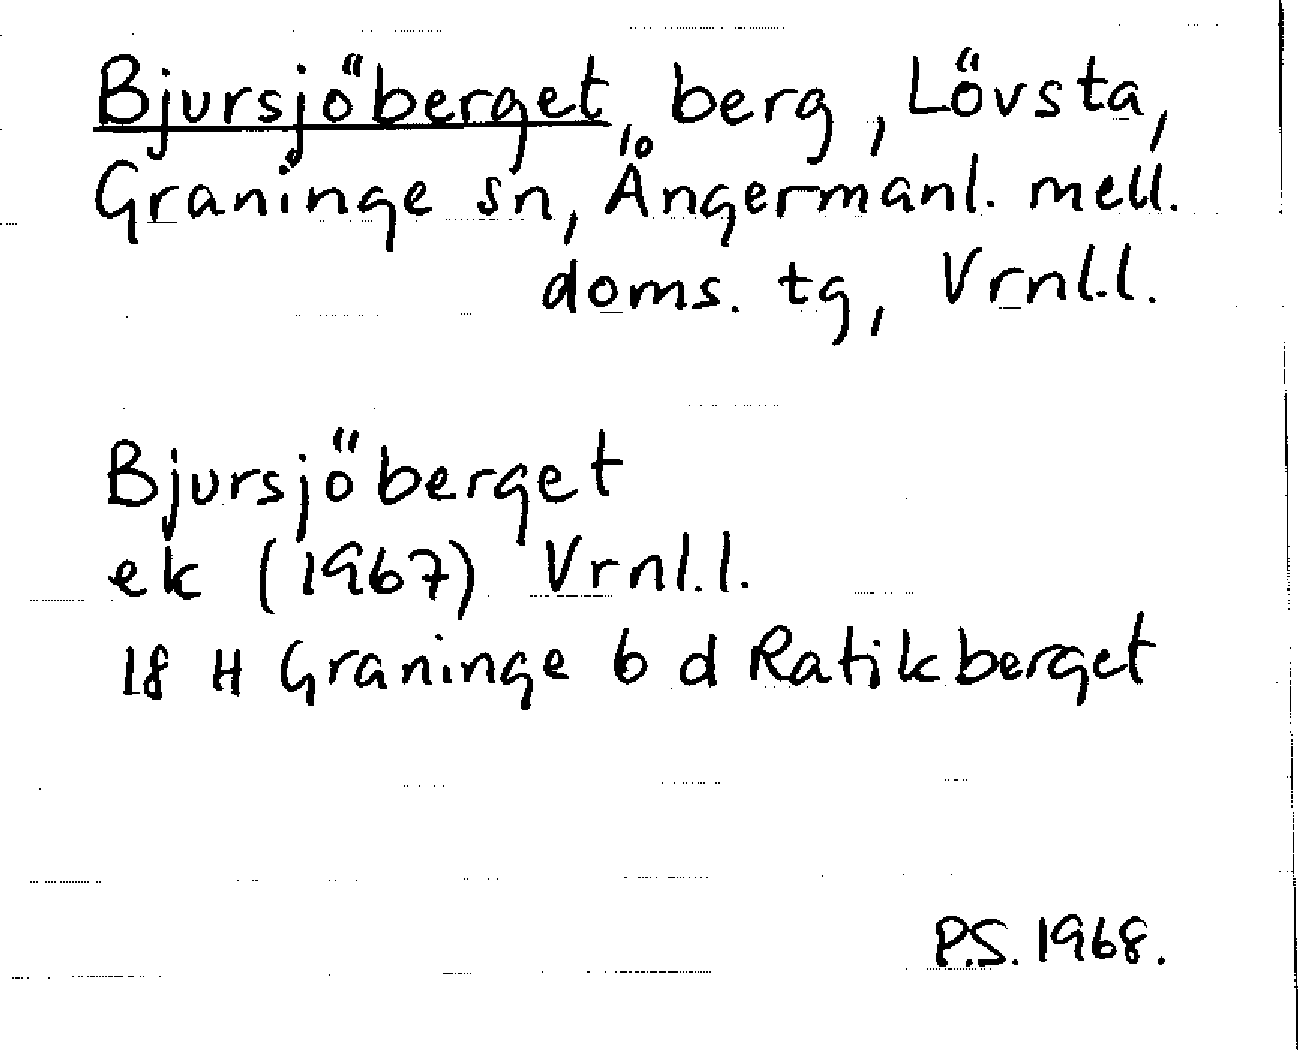 Bjursjöberget, berg, Lövsta,
Graninge sn, Ångermanl. mell.
doms. tg, Vrnl.l.
Bjursjöberget
ek (1967) Vrnl.l.
18 H Graninge 6 d Ratikberget
P.S. 1968.